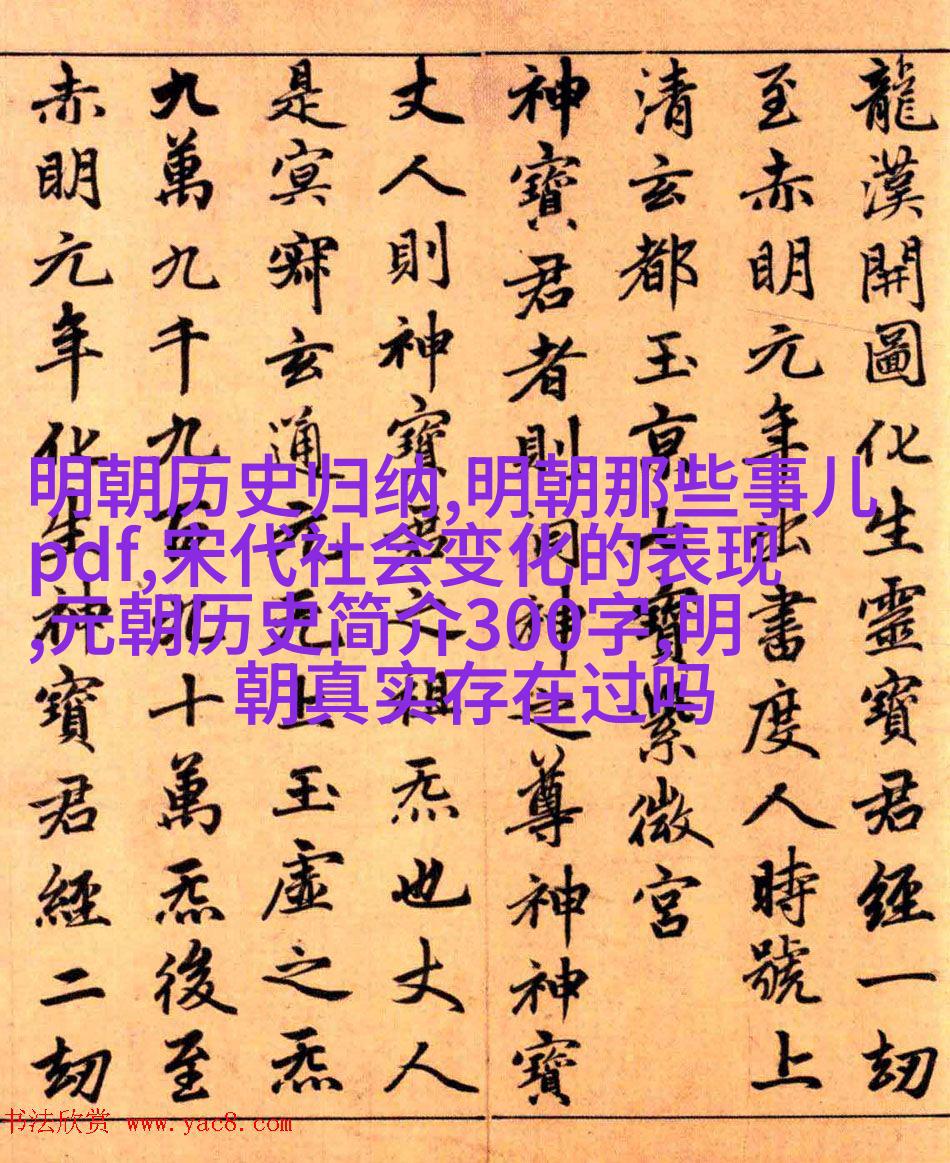 龍漢開圖化生靈寶君經一劫
至赤明元年出書度人時號上
清玄都玉京七寶紫微宮
神寶君者則洞神之尊神神寶
丈人則神寶君之祖炁也丈人
是冥寂玄通元无上玉虛之炁
九萬九千九百九十萬炁後至
赤明元年化生神寶君經二劫
明朝历史归纳,明朝那些事儿
pdf,宋代社会变化的表现
,元朝历史简介300字,明
朝真实存在过吗
书法欣赏 www.yac8.com